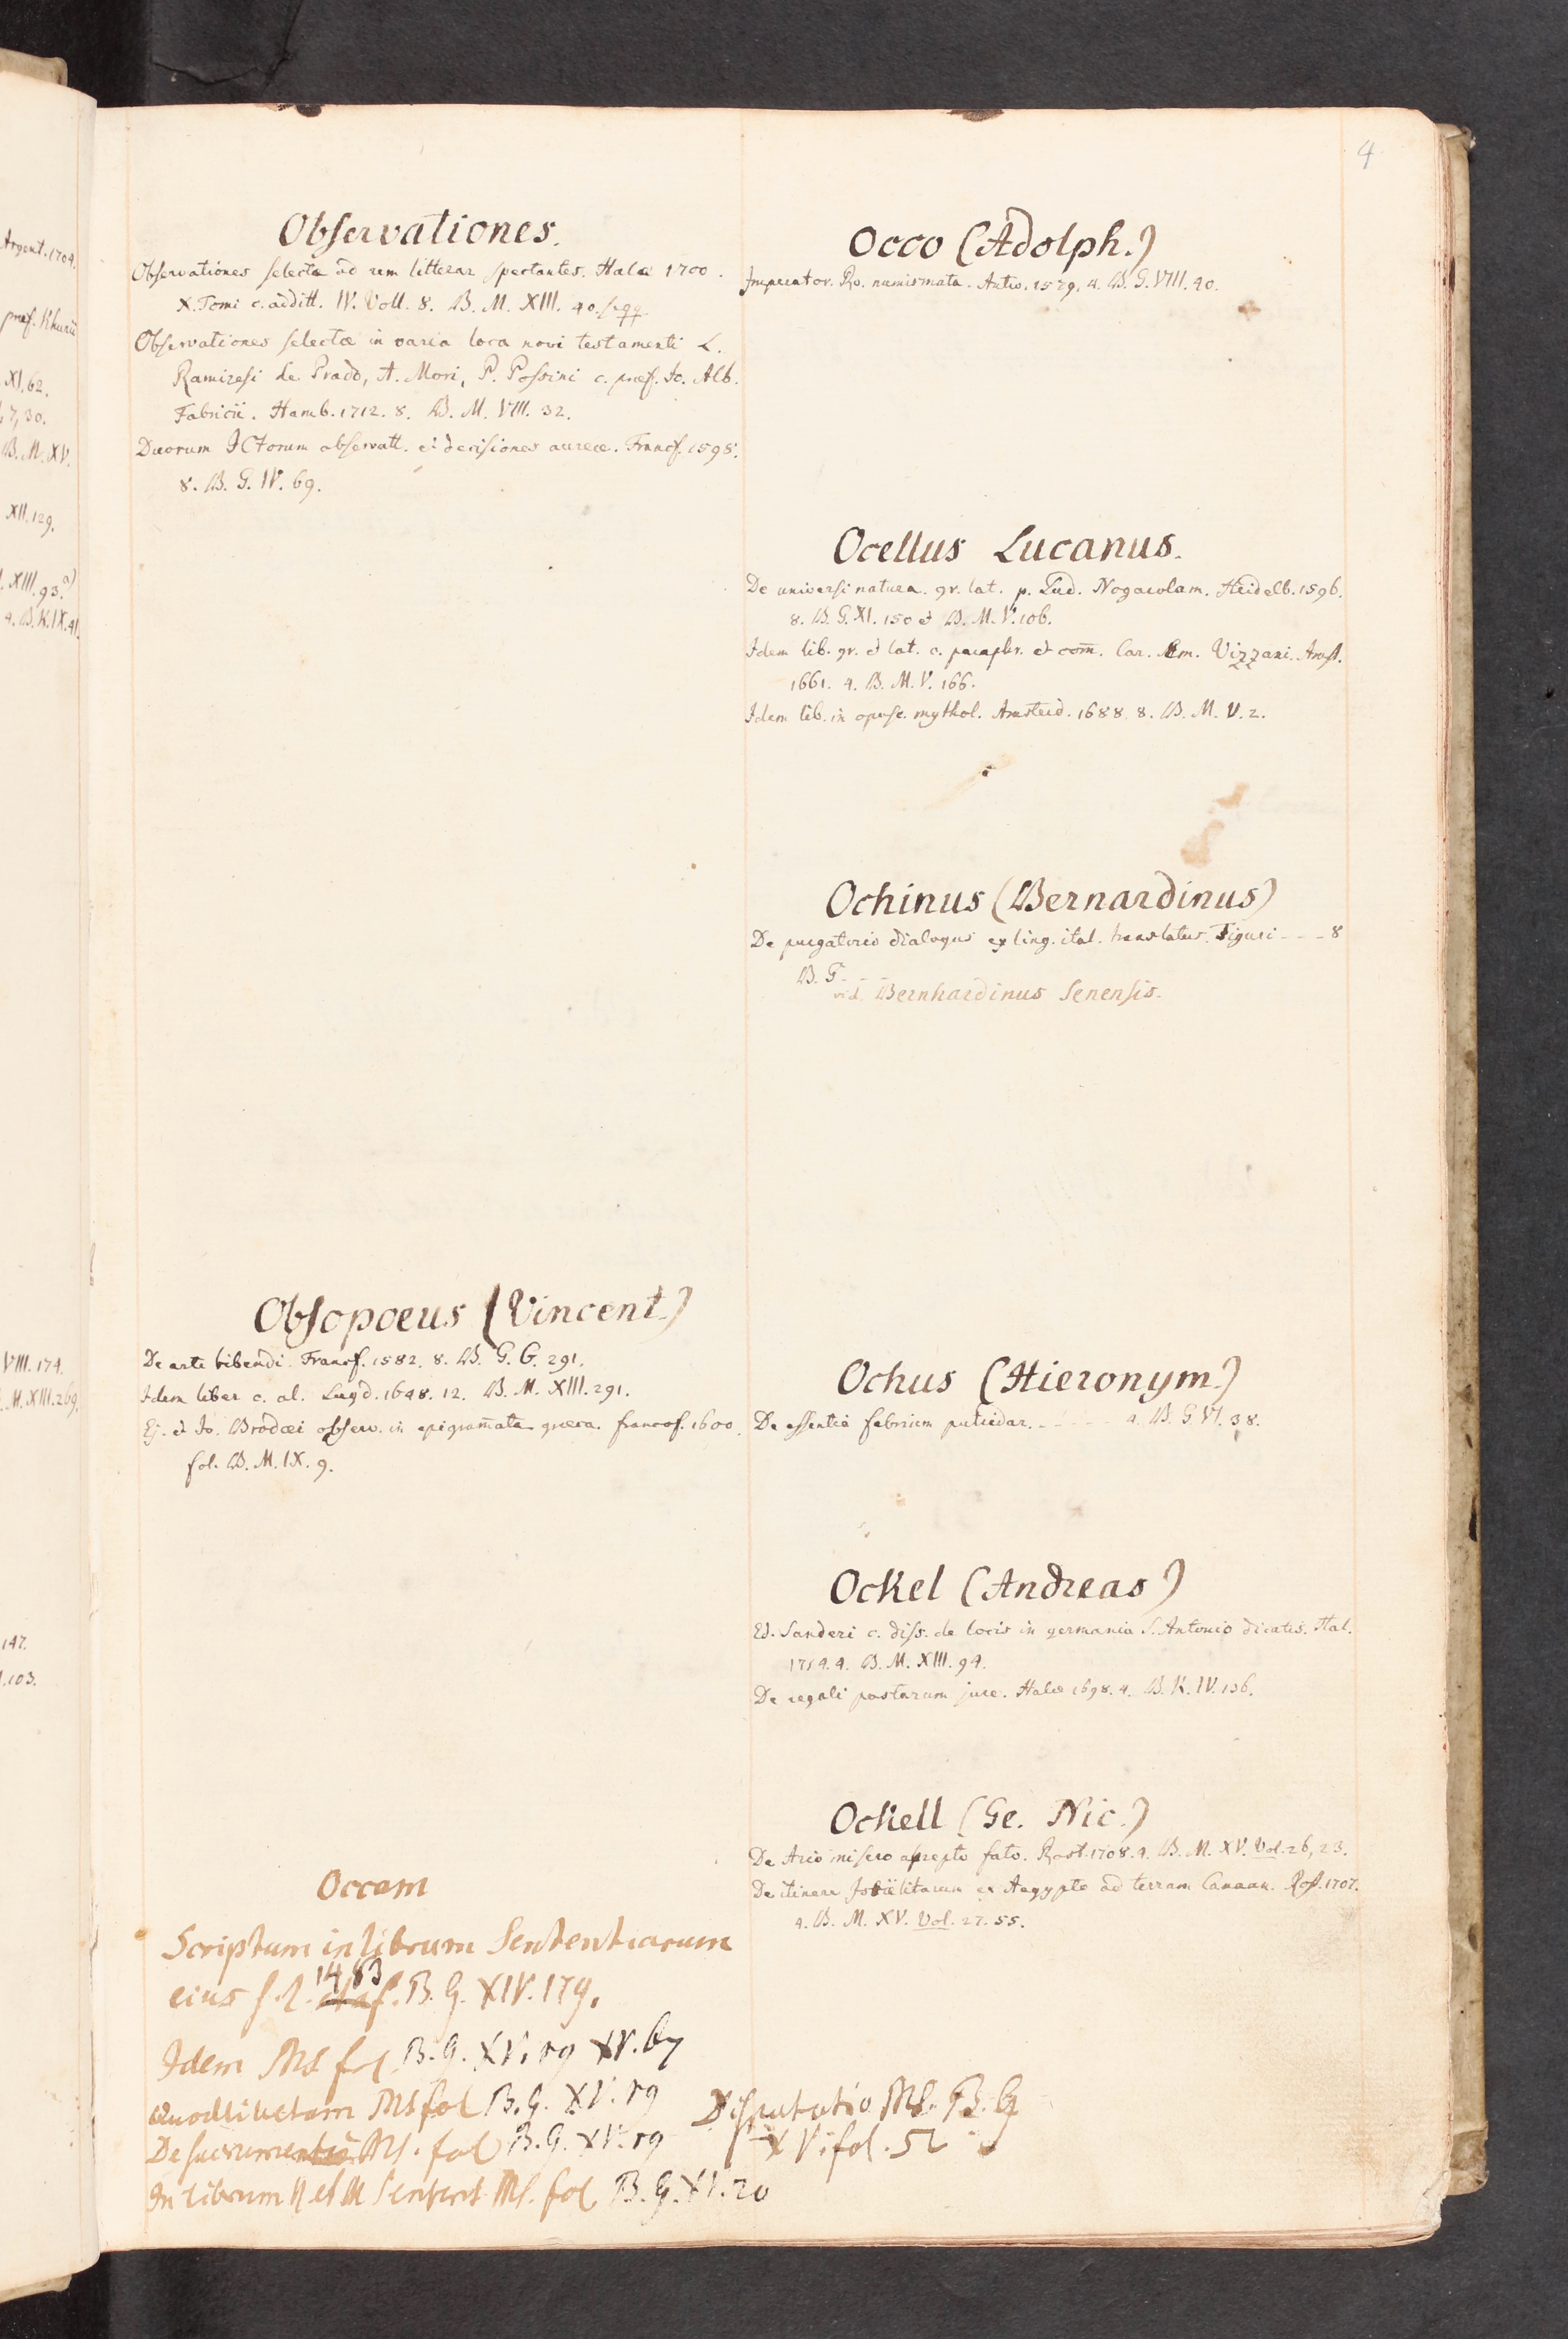 4
Observationes.
Observationes selectæ ad rem litterar spectantes. Halæ 1700.
X. Tomi c. additt. IV. Voll. 8. B. M. XIII. 40. sqq.
Observationes selectæ in varia loca novi testamenti L.
Ramiresi de Prado, A. Mori, P. Possini c. præf. Jo. Alb.
Fabricii. Hamb. 1712. 8. B. M. VIII. 32.
Duorum JCtorum observatt. et decisiones aureæ. Francf. 1595.
8. B. G. IV. 69.
Obsopoeus (Vincent.)
De arte bibendi. Francf. 1582. 8. B. G. G. 291.
Idem liber c. al. Lugd. 1648. 12. B. M. XIII. 291.
Ej. et Jo. Brodæi observ. in epigram̄ata græca. francof. 1600.
fol. B. M. IX. 9.
Occam
Scriptum in librum Sententiarum
eius s. l. 1483 f. B. G. XIV. 179.
Idem Ms fol. B. G. XV. 59 XV. 67
Quodlibetum Ms fol B. G. XV. 59
De sacramentis Ms. fol B. G. XV. 59
In librum II et III Sentent. Ms. fol B. G. XV. 20
Disputatio Ms. B. G
XV. fol. 52
Occo (Adolph.)
Imperator. Ro. numismata. Antw. 1579. 4. B. G. VIII. 40.
Ocellus Lucanus.
De universi natura. gr. lat. p. Lud. Nogarolam. Heidelb. 1596.
8. B. G. XI. 150 et B. M. V. 106.
Idem lib. gr. et lat. c. paraphr. et com̄. Car. Em. Vizzani. Amst.
1661. 4. B. M. V. 166.
Idem lib. in opusc. mythol. Amsteld. 1688. 8. B. M. V. 2.
Ochinus (Bernardinus)
De purgatorio dialogus ex ling. ital. translatus. Tiguri - - - 8
B. G. - -
vid. Bernhardinus Senensis.
Ochus (Hieronym.)
De essentia febrium putridar. - - - - - 4. B. G. VI. 38.
Ockel (Andreas)
Ed. Sanderi c. diss. de locis in germania S. Antonio dicatis. Hal.
1714. 4. B. M. XIII. 94.
De regali postarum jure. Halæ 1698. 4. B. K. IV. 136.
Ockell (Ge. Nic.)
De Ario misero abrepto fato. Rost. 1708. 4. B. M. XV. Vol. 26, 23.
De itinere Israelitarum ex Aegypto ad terram Canaan. Ros. 1707.
4. B. M. XV. Vol. 27. 55.
Argent. 1704.
XI. 62.
7, 30.
B. M. XV.
XII. 129.
XIII. 93. a)
4. B. K. IX. 41.
VIII. 174.
M. XIII. 269.
147.
103.